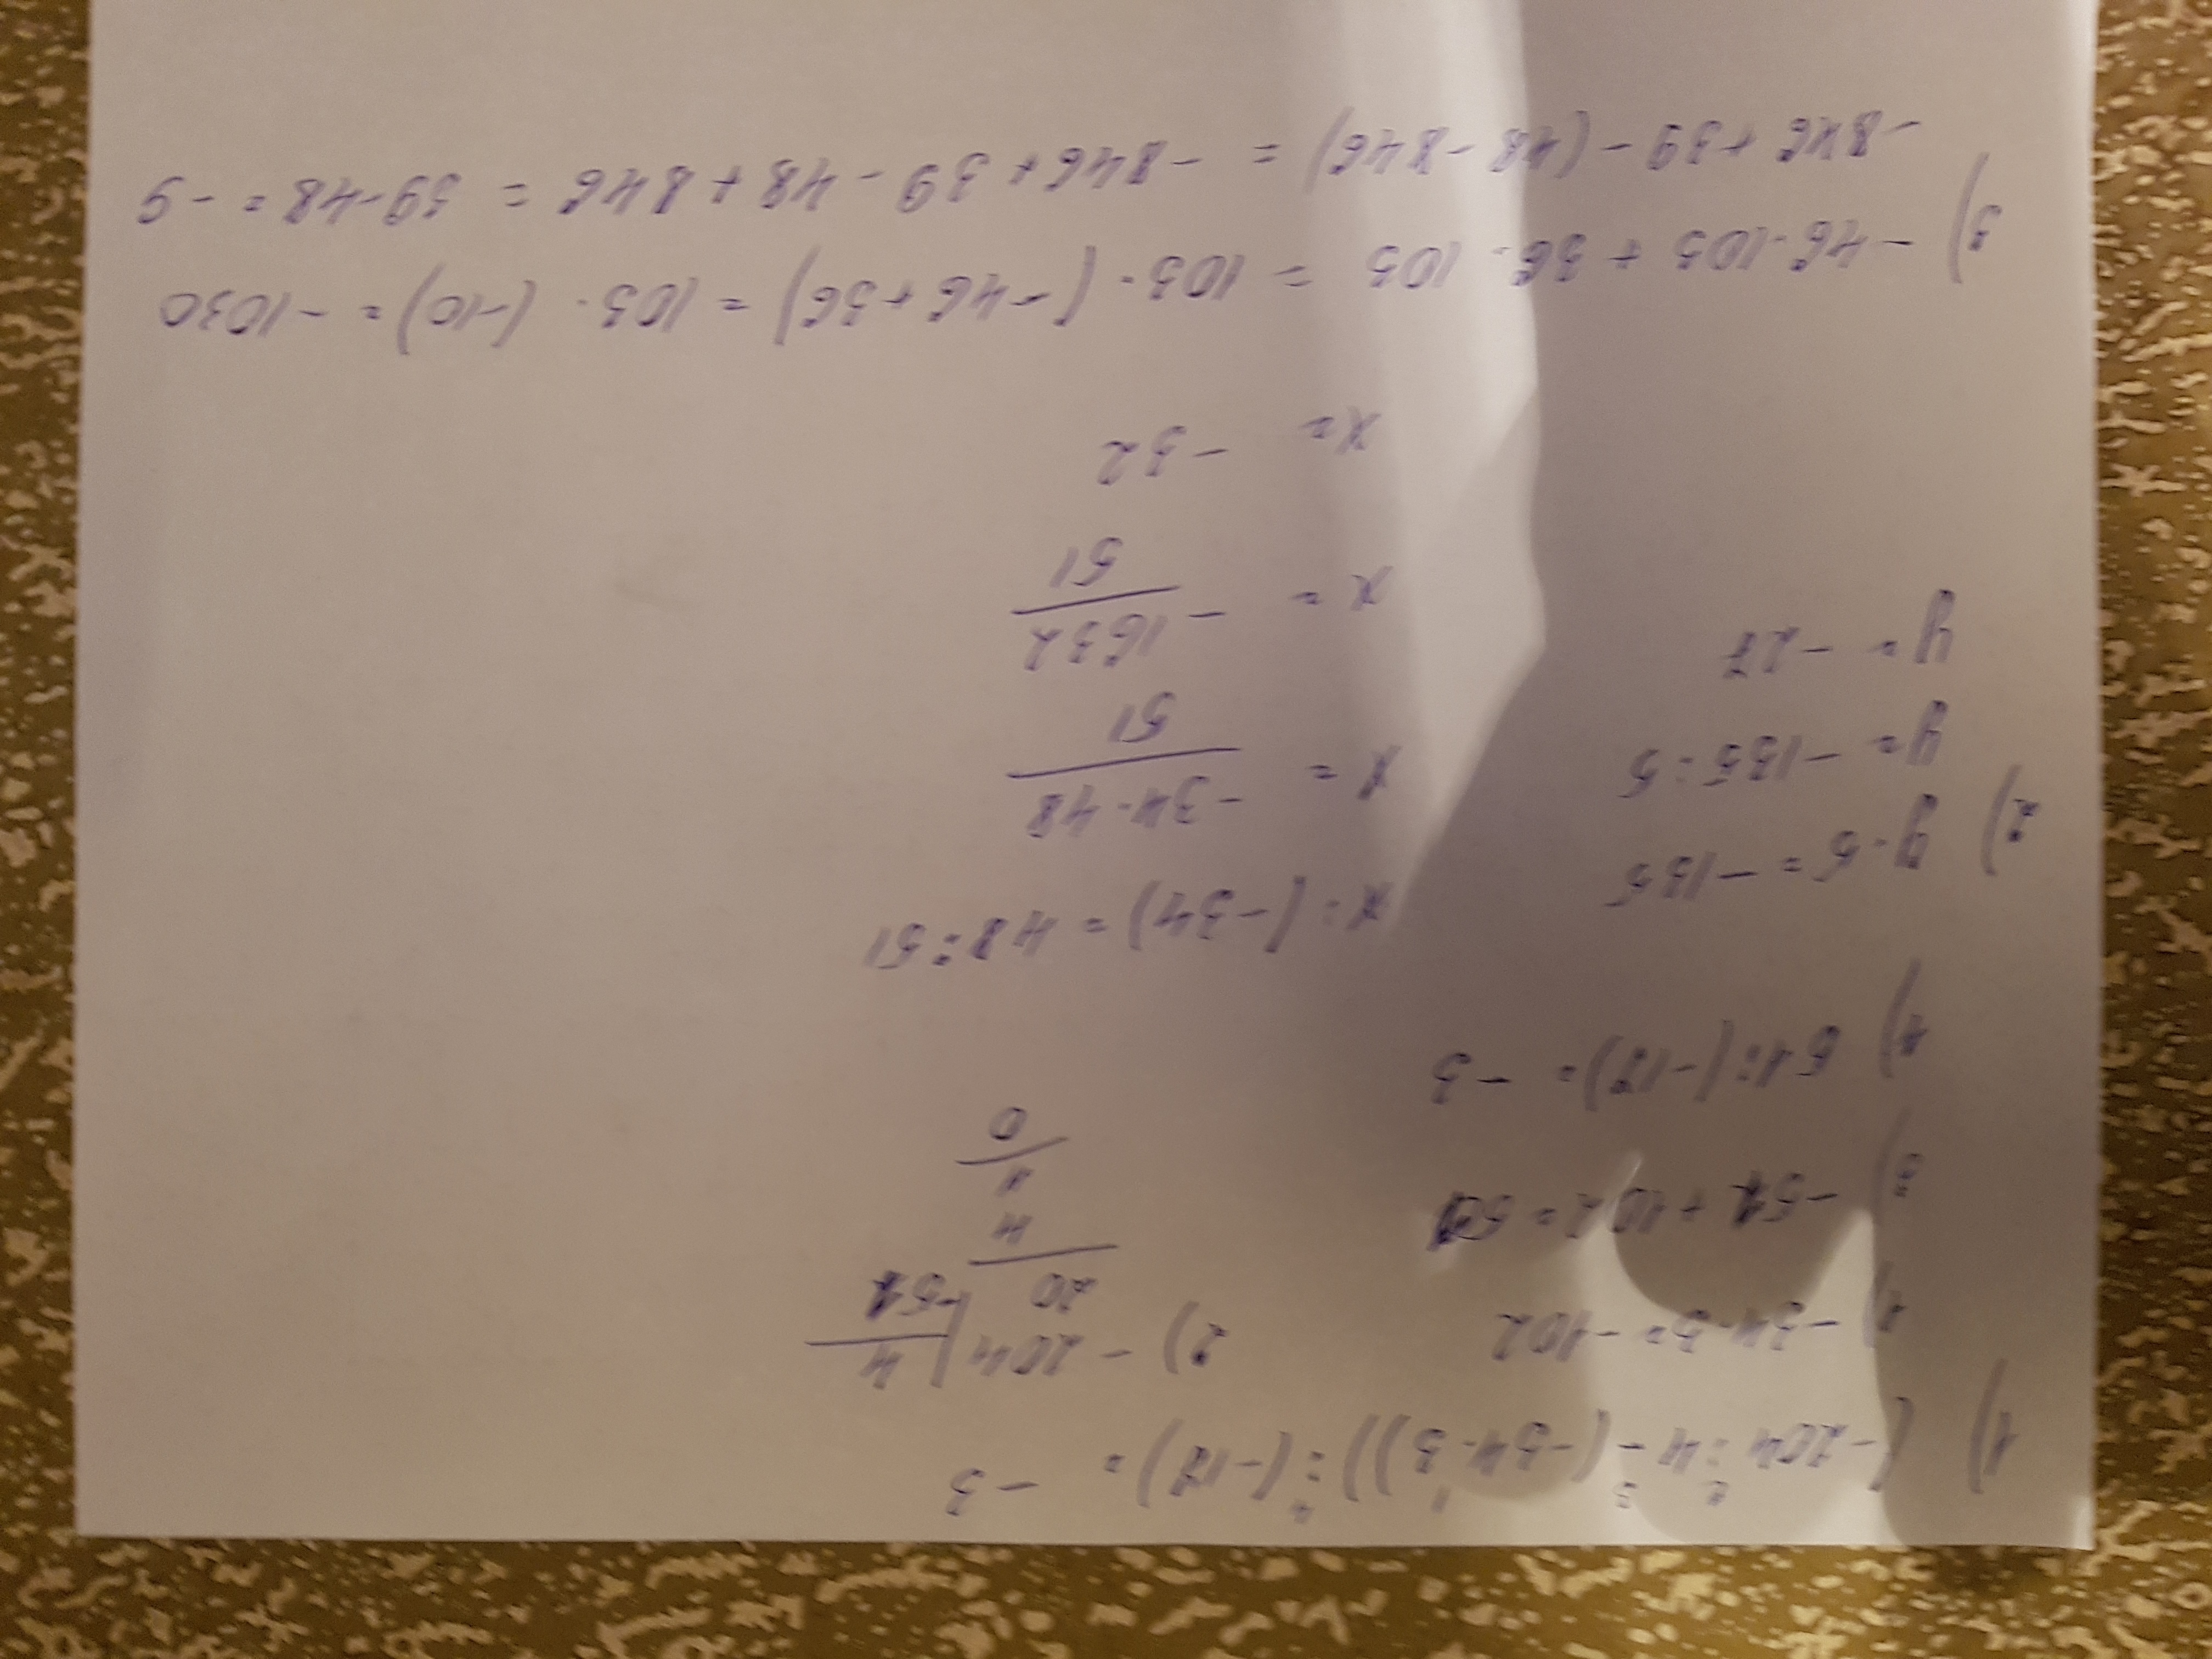 1) (-204 : 4 - (-34 · 3)) : (-17) = -3
1) -34 · 3 = -102
2) -204 | 4
20 | -51
4
4
0
3) -51 + 102 = 51
4) 51 : (-17) = -3
2) y · 5 = -135
y = -135 : 5
y = -27
x : (-34) = 48 : 51
x = -34 · 48 / 51
x = -1632 / 51
x = -32
3) -46 · 103 + 36 · 103 = 103 · (-46 + 36) = 103 · (-10) = -1030
-846 + 39 - (48 - 846) = -846 + 39 - 48 + 846 = 39 - 48 = -9